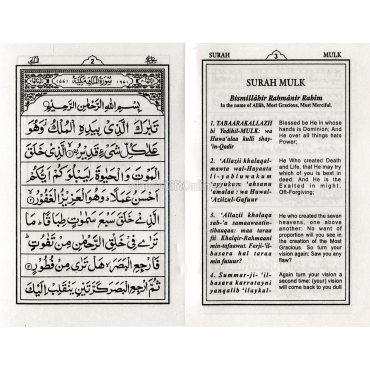 2
بِسْمِ اللهِ الرَّحْمٰنِ الرَّحِيْمِ
تَبٰرَكَ الَّذِيْ بِيَدِهِ الْمُلْكُ وَهُوَ
عَلٰى كُلِّ شَيْءٍ قَدِيْرُ الَّذِيْ خَلَقَ
الْمَوْتَ وَالْحَيٰوةَ لِيَبْلُوَكُمْ اَيُّكُمْ
اَحْسَنُ عَمَلًا وَهُوَ الْعَزِيْزُ الْغَفُوْرُ
الَّذِيْ خَلَقَ سَبْعَ سَمٰوٰتٍ طِبَاقًا مَا
تَرٰى فِيْ خَلْقِ الرَّحْمٰنِ مِنْ تَفٰوُتٍ
فَارْجِعِ الْبَصَرَ هَلْ تَرٰى مِنْ فُطُوْرٍ
ثُمَّ ارْجِعِ الْبَصَرَ كَرَّتَيْنِ يَنْقَلِبْ اِلَيْكَ
SURAH 3 MULK
SURAH MULK
Bismillâhir Rahmânir Rahîm
In the name of Allâh, Most Gracious, Most Merciful.
1. TABAARAKALLAZII
bi Yadihil-MULK: wa
Huwa'alaa kulli shay-
'in-Qadir
Blessed be He In whose
hands is Dominion; And
He over all things hath
Power;
2. 'Allazii khalaqal-
mawta wal-Hayaata
li-yabluwakum
'ayyukum 'ahsana
'amalaa: wa Huwal-
'Azlizul-Gafuur
He Who created Death
and Life, that He may try
which of you is best in
deed: And He is the
Exalted in might.
Oft-Forgiving
3. 'Allazii khalaqa
sab'a samaawaatin-
tibaaqaa: maa taraa
fii Khalqir-Rahmaani
min-tafaawut. Farji-'il-
basara hal taraa
min futuur?
He created the seven
heavens, one above
another; No want of
proportion will you see in
the creation of the Most
Gracious. So turn your
vision again: Saw you any
flaw?
4. Summar-ji-'il-
basara karratayni
yanqalib 'ilaykal-
Again turn your vision a
second time; (your) vision
will come back to you dull